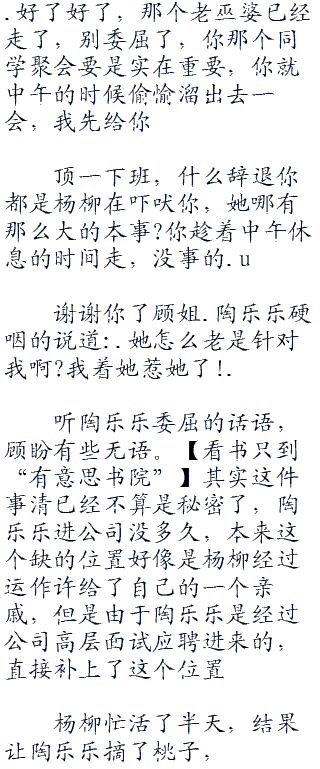 .好了好了，那个老巫婆已经
走了，别委屈了，你那个同
学聚会要是实在重要，你就
中午的时候偷偷溜出去一
会，我先给你
顶一下班，什么辞退你
都是杨柳在吓唬你，她哪有
那么大的本事?你趁着中午休
息的时间走，没事的.u
谢谢你了顾姐.陶乐乐硬
咽的说道:.她怎么老是针对
我啊?我着她惹她了!.
听陶乐乐委屈的话语，
顾盼有些无语。【看书只到
“有意思书院”】其实这件
事清已经不算是秘密了，陶
乐乐进公司没多久，本来这
个缺的位置好像是杨柳经过
运作许给了自己的一个亲
戚，但是由于陶乐乐是经过
公司高层面试应聘进来的，
直接补上了这个位置
杨柳忙活了半天，结果
让陶乐乐摘了桃子，